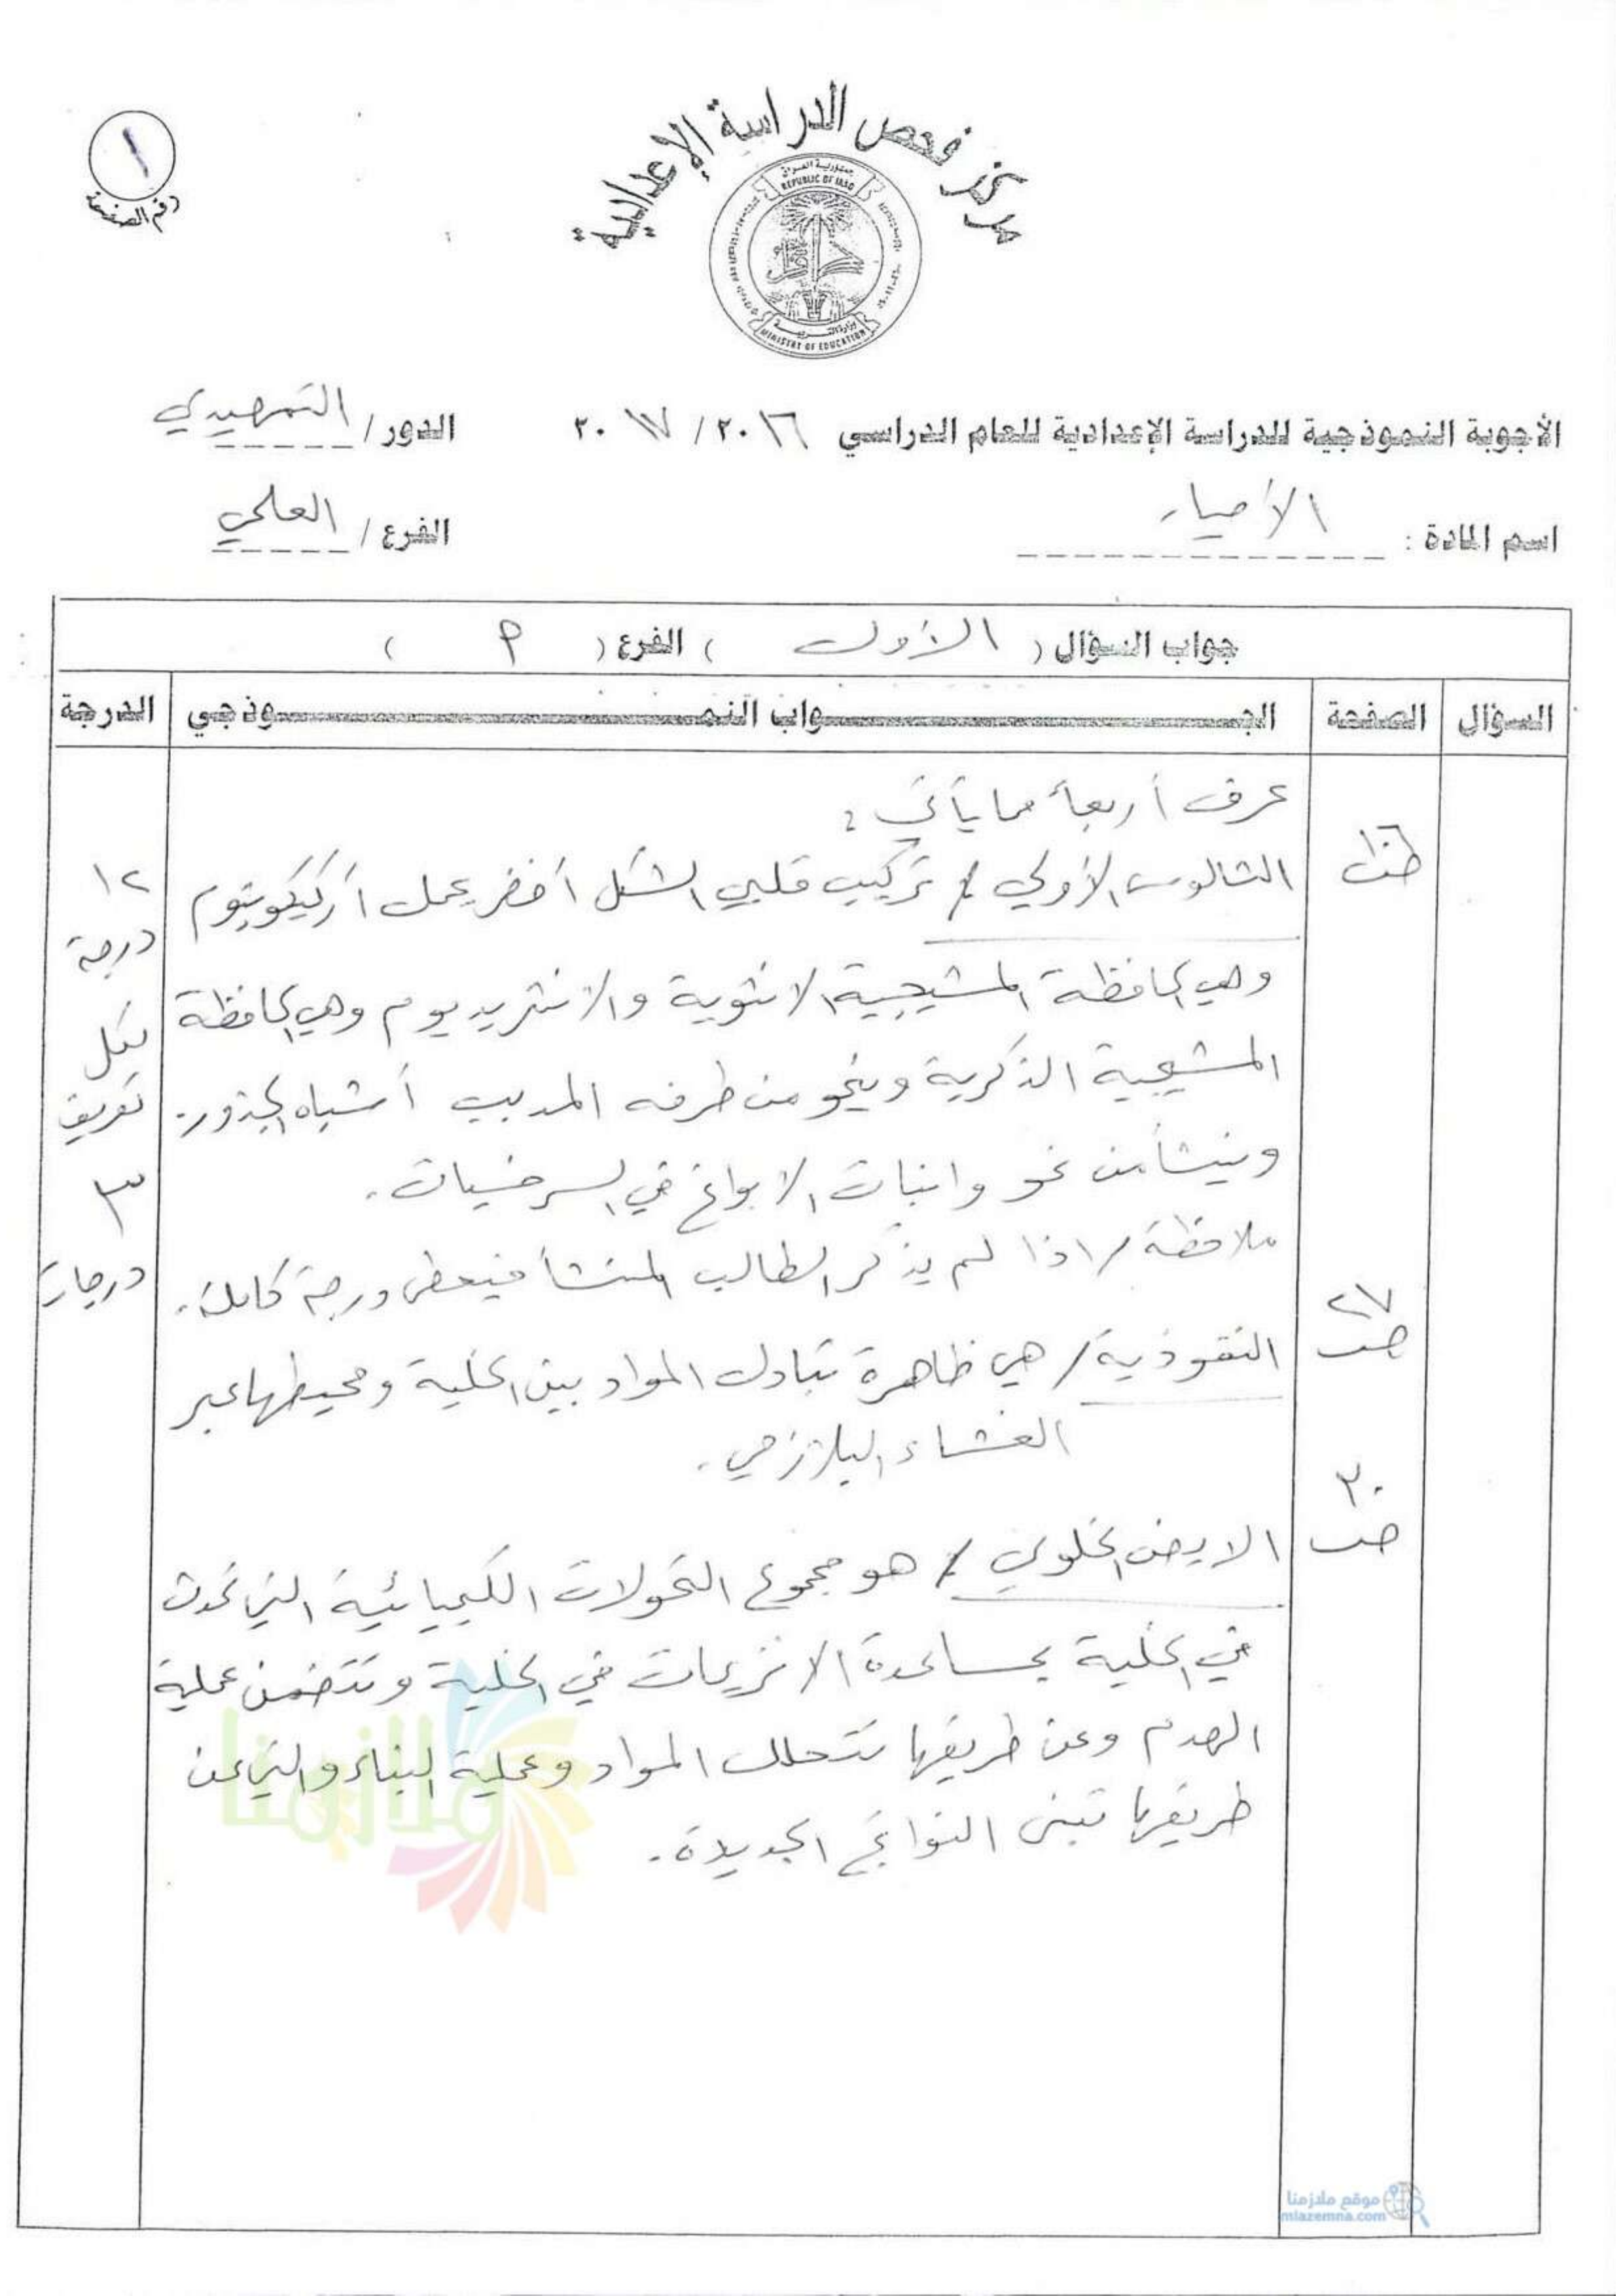 مركز فحص الدراسة الإعدادية
جمهورية العراق
REPUBLIC OF IRAQ
وزارة التربية
MINISTRY OF EDUCATION
١
رقم الصفحة
الأجوبة النموذجية للدراسة الإعدادية للعام الدراسي ٢٠١٦ / ٢٠١٧ الدور / التمهيدي
اسم المادة : الأحياء الفرع / العلمي
جواب السؤال ( الأول ) الفرع ( P )
السؤال الصفحة الجـواب النمـوذجي الدرجة
عرف أربعاً مما يأتي :
الثالوس الأولي / تركيب قلبي الشكل أخضر يحمل أركيكونيوم
وهي الحافظة المشيجية الانثوية والانثريديوم وهي الحافظة
المشيجية الذكرية وينمو من طرفه المدبب أشباه الجذور.
وينشأ من نمو وانبات الابواغ في السرخسيات.
ملاحظة / اذا لم يذكر الطالب المنشأ فيعطى درجة كاملة.
النفوذية / هي ظاهرة تبادل المواد بين الخلية ومحيطها عبر
الغشاء البلازمي.
الايض الخلوي / هو مجموع التحولات الكيميائية التي تحدث
في الخلية بمساعدة الانزيمات في الخلية وتتضمن عملية
الهدم وعن طريقها تتحلل المواد وعملية البناء والتي عن
طريقها تبنى النواتج الجديدة.
ص
٢٧
ص
٣٠
ص
١٢
درجة
لكل
تعريف
٣
درجات
ملازمنا
موقع ملازمنا
mlazemna.com